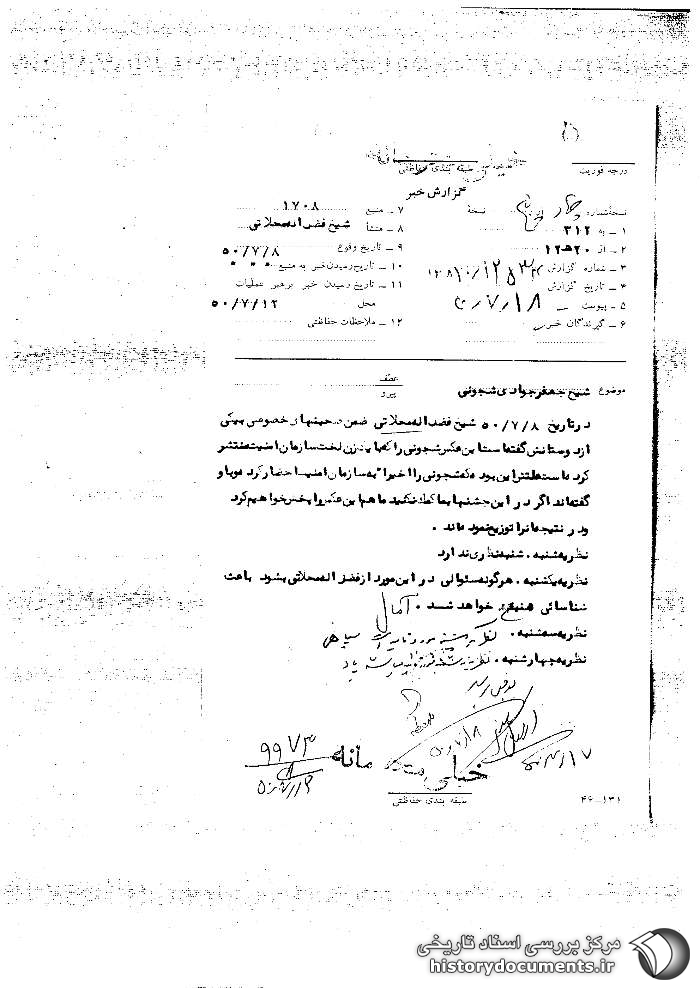 طبقه بندی حفاظتی
درجه فوریت
گزارش خبر
نسخه شماره
نسخه
۱ - به ۳۱۲
۲ - از ۲۰ ه ۱۲
۳ - شماره گزارش
۴ - تاریخ گزارش ۱۸ر۷ر۵۰
۵ - پیوست
۶ - گیرندگان خبر
۷ - منبع ۱۷۰۸
۸ - منشأ شیخ فضل اله محلاتی
۹ - تاریخ وقوع ۵۰/۷/۸
۱۰ - تاریخ رسیدن خبر به منبع
۱۱ - تاریخ رسیدن خبر برهبر عملیات
محل ۵۰/۷/۱۲
۱۲ - ملاحظات حفاظتی
موضوع شیخ جعفر جوادی شجونی
عطف
پیرو
در تاریخ ۵۰/۷/۸ شیخ فضل اله محلاتی ضمن صحبتهای خصوصی بیکی
از دوستانش گفته است این عکس شجونی را که با یک زن لخت سازمان امنیت منتشر
کرده است علتش این بوده که شجونی را اخیرا" به سازمان امنیت احضار کرده و باو
گفته اند اگر در این جشنها بما کمک نکنید ما هم این عکس را پخش خواهیم کرد
و در نتیجه آنرا توزیع نموده اند .
نظریه شنبه . شنبه نظری ندارد
نظریه یکشنبه . هرگونه سئوالی در این مورد از فضل اله محلاتی بشود باعث
شناسائی منبع خواهد شد . آمال
نظریه سه شنبه . نظریه یکشنبه مورد تایید است
نظریه چهارشنبه .
۱۷ر۷ر۵۰
خیلی محرمانه
۹۹۷۳
طبقه بندی حفاظتی
۴۶-۱۳۱
مرکز بررسی اسناد تاریخی
historydocuments.ir